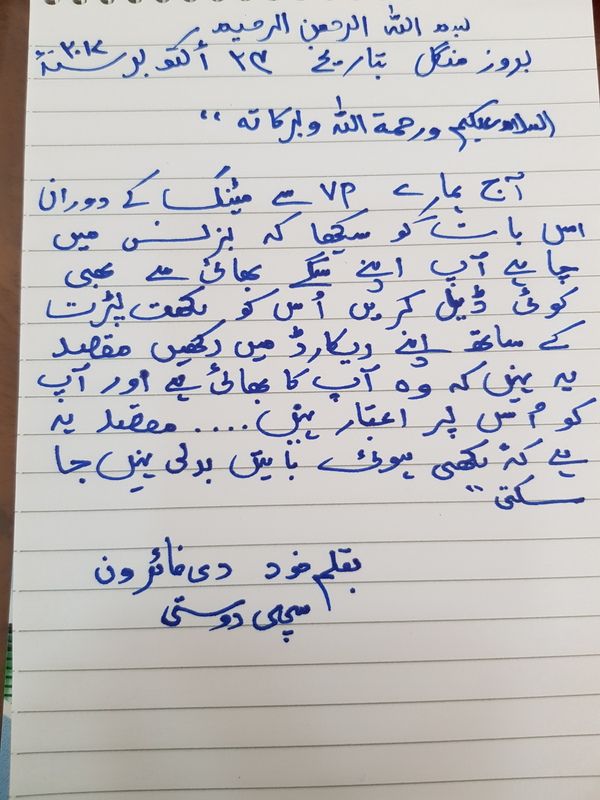 بسم اللہ الرحمن الرحیم
بروز منگل بتاریخ ۲۴ اکتوبر سنۃ ۲۰۱۷
السلام علیکم ورحمۃ اللہ وبرکاتہ “
آج ہمارے VP سے میٹنگ کے دوران
اس بات کو سیکھا کہ بزنس میں
چاہے آپ اپنے سگے بھائی سے بھی
کوئی ڈیل کریں اُس کو لکھت پڑت
کے ساتھ اپنے ریکارڈ میں رکھیں مقصد
یہ نہیں کہ وہ آپ کا بھائی ہے اور آپ
کو اُس پر اعتبار نہیں .... مقصد یہ
ہے کہ لکھی ہوئی باتیں بدلی نہیں جا
سکتی “
بقلم خود دی فائزون
سچی دوستی